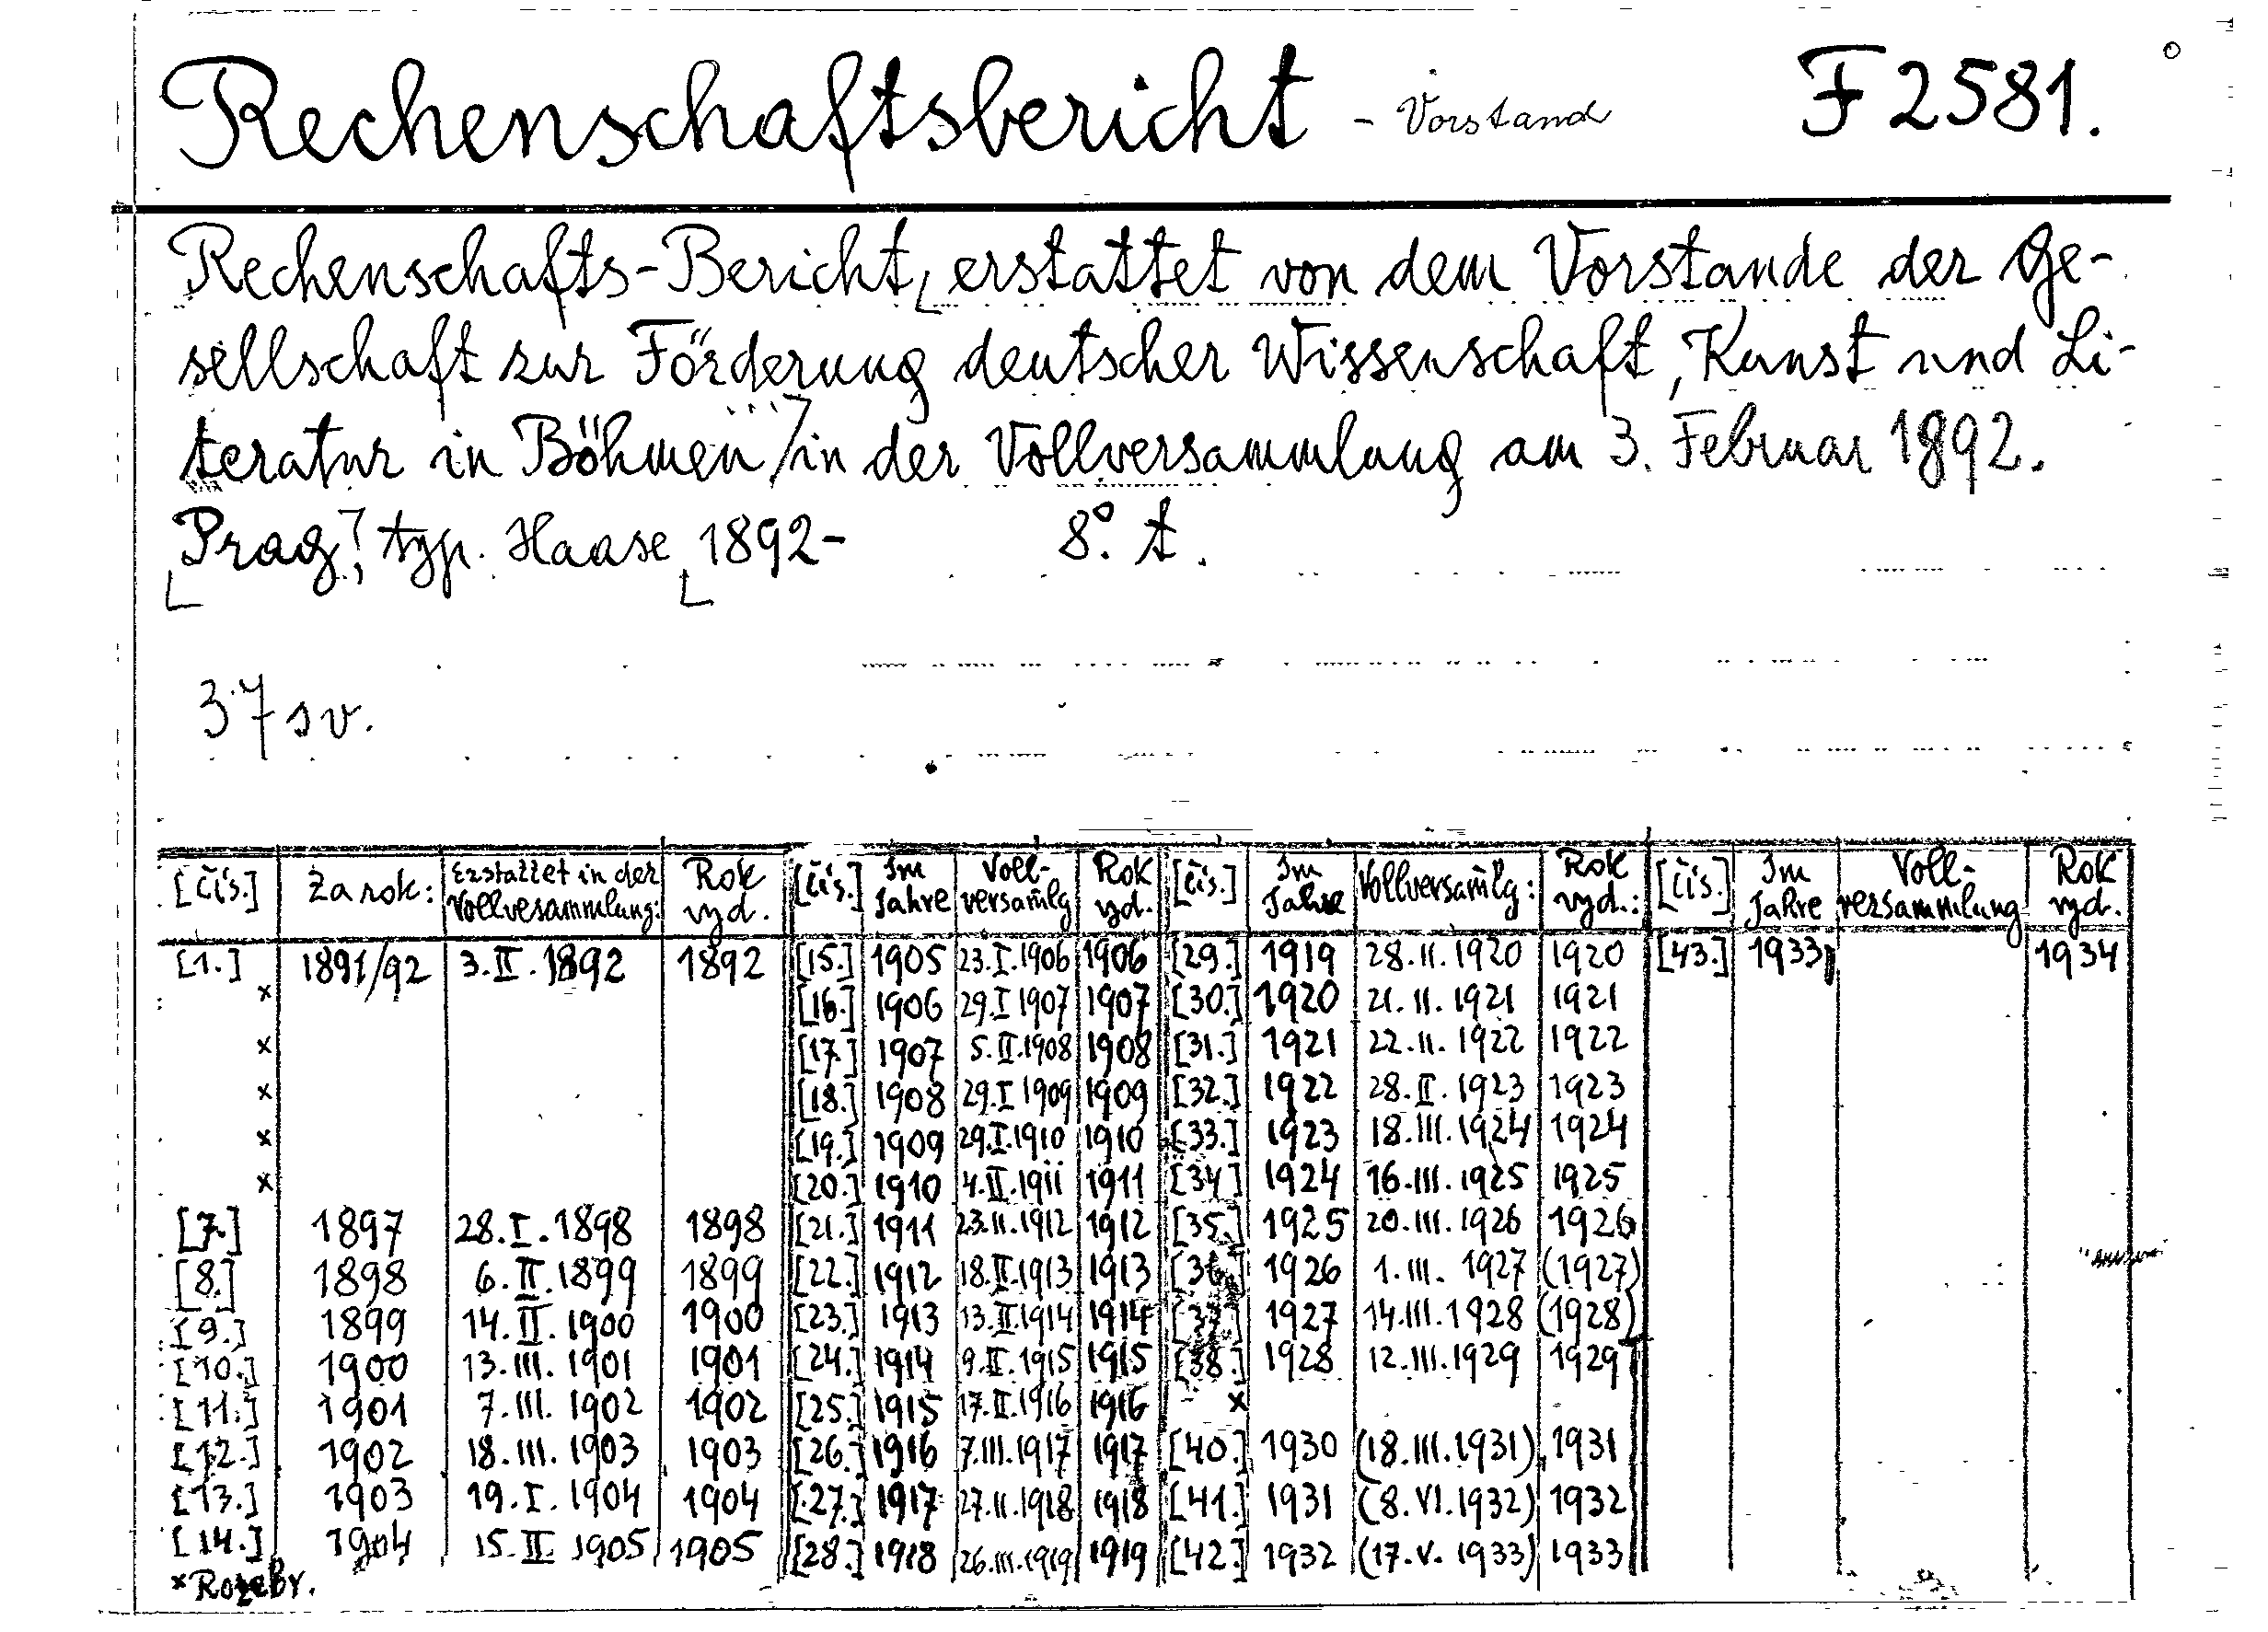 Rechenschaftsbericht - Vorstand F 2581.
Rechenschafts-Bericht, erstattet von dem Vorstande der Ge-
sellschaft zur Förderung deutscher Wissenschaft, Kunst und Li-
teratur in Böhmen in der Vollversammlung am 3. Februar 1892.
[Prag], typ. Haase, 1892- 8°. t.
37 sv.
[čís.] Za rok: Erstattet in der Vollvesammlung: Rok vyd. [čís.] Im Jahre Voll-versamlg Rok vyd. [čís.] Im Jahre Vollversamlg: Rok vyd.: [čís.] Im Jahre Voll-versammlung Rok vyd.
[1.] 1891/92 3.II.1892 1892 [15.] 1905 23.I.1906 1906 [29.] 1919 28.II.1920 1920 [43.] 1933 1934
x [16.] 1906 29.I 1907 1907 [30.] 1920 21.II.1921 1921
x [17.] 1907 5.II.1908 1908 [31.] 1921 22.II.1922 1922
x [18.] 1908 29.I 1909 1909 [32.] 1922 28.II.1923 1923
x [19.] 1909 29.I.1910 1910 [33.] 1923 18.III.1924 1924
x [20.] 1910 4.II.1911 1911 [34] 1924 16.III.1925 1925
[7.] 1897 28.I.1898 1898 [21.] 1911 23.II.1912 1912 [35.] 1925 20.III.1926 1926
[8.] 1898 6.II.1899 1899 [22.] 1912 18.II.1913 1913 [36.] 1926 1.III.1927 (1927)
[9.] 1899 14.II.1900 1900 [23.] 1913 13.II.1914 1914 [37] 1927 14.III.1928 (1928)
[10.] 1900 13.III.1901 1901 [24.] 1914 9.II.1915 1915 [38.] 1928 12.III.1929 1929
[11.] 1901 7.III.1902 1902 [25.] 1915 17.II.1916 1916 x
[12.] 1902 18.III.1903 1903 [26.] 1916 7.III.1917 1917 [40.] 1930 (18.III.1931) 1931
[13.] 1903 19.I.1904 1904 [27.] 1917 27.II.1918 1918 [41.] 1931 (8.VI.1932) 1932
[14.] 1904 15.II.1905 1905 [28.] 1918 26.III.1919 1919 [42.] 1932 (17.V.1933) 1933